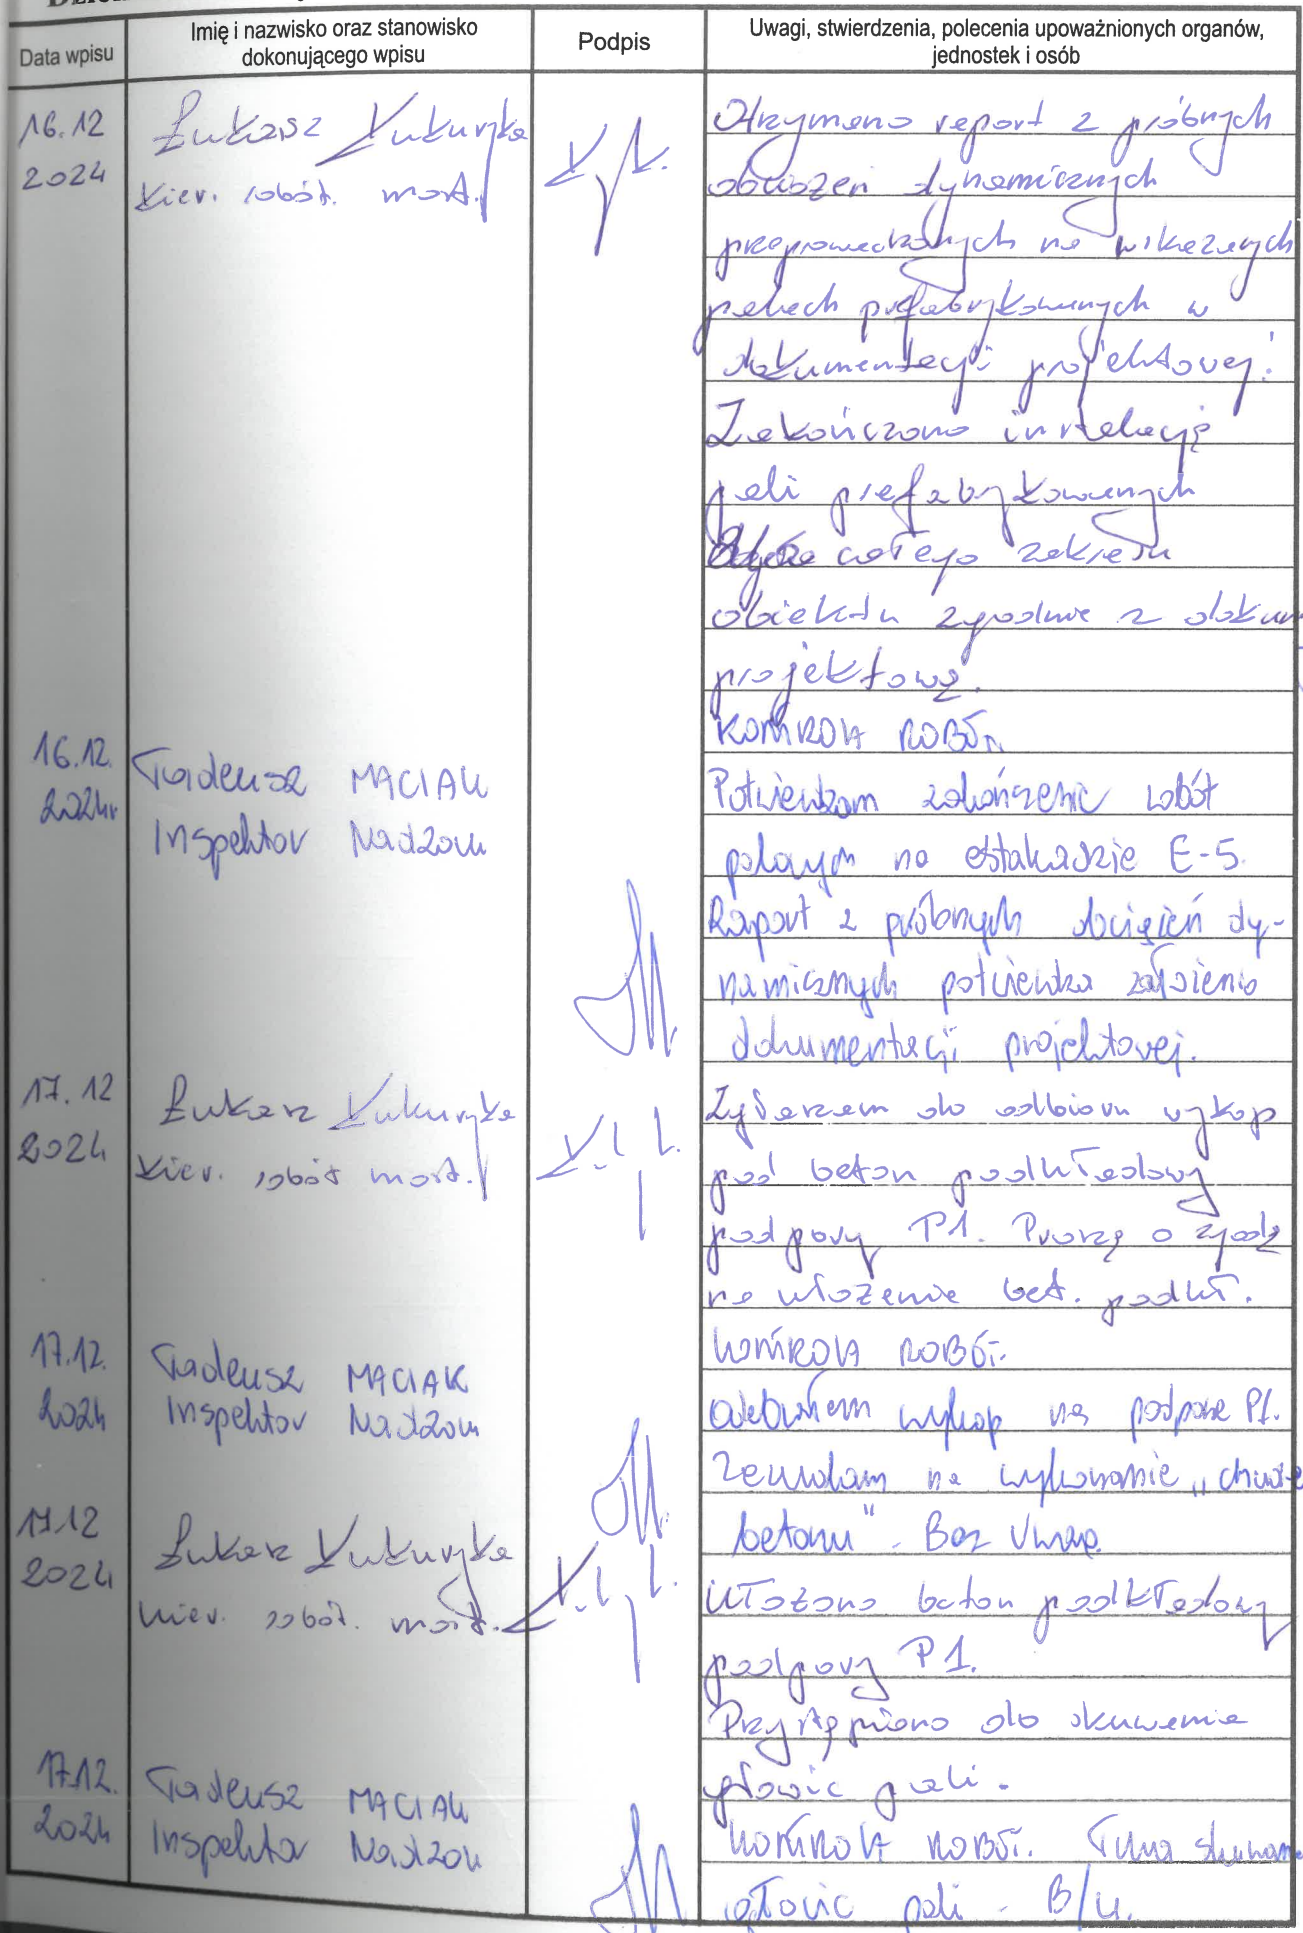 Data wpisu
Imię i nazwisko oraz stanowisko
dokonującego wpisu
Podpis
Uwagi, stwierdzenia, polecenia upoważnionych organów,
jednostek i osób
16.12
2024
Łukasz Kukuryka
Kier. robót. most.
Otrzymano raport z próbnych
obciążeń dynamicznych
przeprowadzonych na wskazanych
palach prefabrykowanych w
dokumentacji projektowej.
Zakończono instalację
pali prefabrykowanych
całego zakresu
obiektu zgodnie z dokum
projektową.
16.12.
2024r
Tadeusz MACIAK
Inspektor Nadzoru
KONTROLA ROBÓT.
Potwierdzam zakończenie robót
palowych na estakadzie E-5.
Raport z próbnych obciążeń dy-
namicznych potwierdza założenia
dokumentacji projektowej.
17.12
2024
Łukasz Kukuryka
Kier. robót most.
Zgłaszam do odbioru wykop
pod beton podkładowy
podpory P1. Proszę o zgodę
na ułożenie bet. podkł.
17.12.
2024
Tadeusz MACIAK
Inspektor Nadzoru
KONTROLA ROBÓT.
Odebrałem wykop na podporze P1.
Zezwalam na wykonanie „chude
betonu" - Bez Uwag.
17.12
2024
Łukasz Kukuryka
Kier. robót. most.
Ułożono beton podkładowy
podpory P1.
Przystąpiono do skuwania
głowic pali.
17.12.
2024
Tadeusz MACIAK
Inspektor Nadzoru
KONTROLA ROBÓT. Trwa skuwanie
głowic pali - B/U.